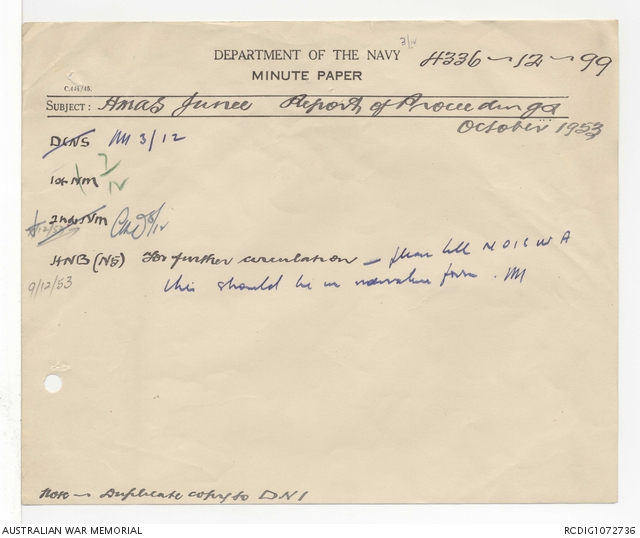 3/12
DEPARTMENT OF THE NAVY 4336~12~99
MINUTE PAPER
SUBJECT: HMAS Junee Reports of Proceedings
October 1953
DCNS 3/12
1st NM 7/12
2nd NM 8/12
HNB (NS) For further circulation — please tell NOICWA
9/12/53 this should be in narrative form.
Note ~ Duplicate copy to DNI
AUSTRALIAN WAR MEMORIAL RCDIG1072736